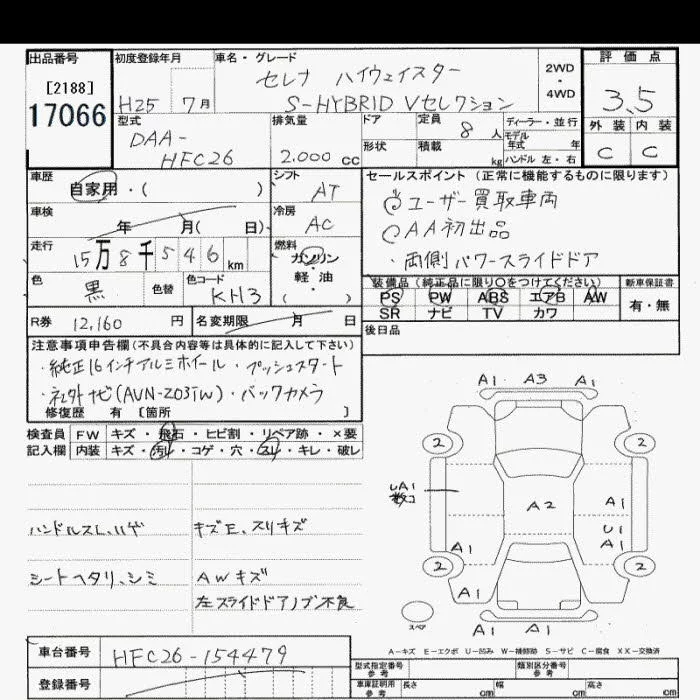 出品番号
[2188]
17066
初度登録年月
H25 7月
車名・グレード
セレナ ハイウェイスター
S-HYBRID Vセレクション
2WD
・
4WD
評価点
3.5
外装 内装
C C
型式
DAA-
HFC26
排気量
2.000 cc
ドア
形状
定員 8 人
積載 kg
ディーラー・並行
モデル
年式 年
ハンドル 左・右
車歴
自家用・( )
シフト
AT
車検
年 月( 日)
冷房
AC
走行
15万8千546km
燃料
ガソリン
・
軽・油
( )
色
黒
色替
色コード
KH3
セールスポイント (正常に機能するものに限ります)
ユーザー買取車両
AA初出品
・両側パワースライドドア
装備品(純正品に限り○をつけてください)
PS PW ABS エアB AW
SR ナビ TV カワ
新車保証書
有・無
R券 12,160 円
名変期限 月 日
後日品
注意事項申告欄(不具合内容等は具体的に記入して下さい)
・純正16インチアルミホイール・プッシュスタート
・社外ナビ(AVN-Z03iW)・バックカメラ
修復歴 有 [箇所 ]
検査員 FW キズ・飛石・ヒビ割・リペア跡・×要
記入欄 内装 キズ・汚レ・コゲ・穴・スレ・キレ・破レ
ハンドルスレ、ハゲ
キズE、スリキズ
シートヘタリ、シミ
AWキズ
左スライドドアノブ不良
A1 A3 A1
2 2
UA1
数コ
A2
A1
U1
A1
A1
2 2
A1
A1 A1
スペア
A-キズ E-エクボ U-凹み W-補修跡 S-サビ C-腐食 XX-交換済
車台番号 HFC26-154479
登録番号
型式指定番号
参考
類別区分番号
参考
車庫証明用
参考
長さ cm 幅 cm 高さ cm